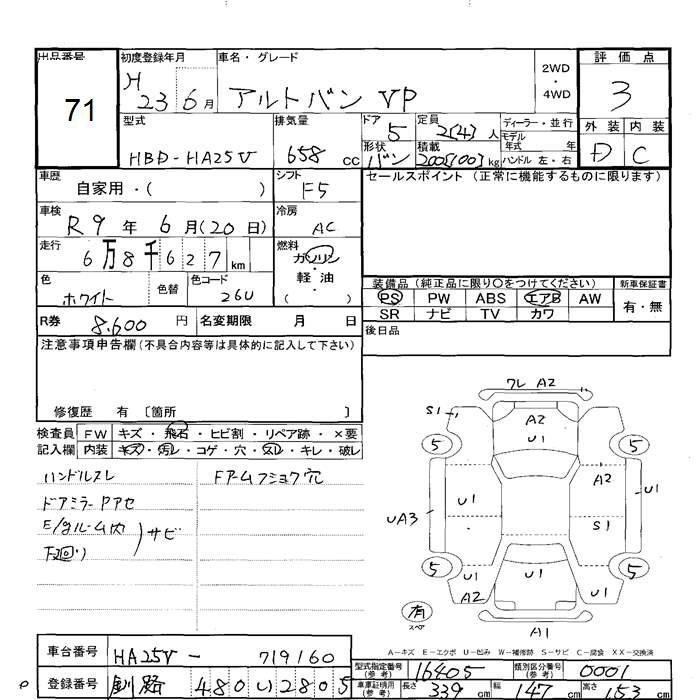 出品番号 初度登録年月 車名・グレード 2WD ・ 4WD 評価点
71 H 23 6月 アルトバン VP 3
型式 排気量 ドア 定員 ディーラー・並行 外装 内装
HBD-HA25V 658 cc 5 2[4] 人 モデル年式 年 D C
形状 バン 積載 200[100] kg ハンドル 左・右
車歴 シフト セールスポイント (正常に機能するものに限ります)
自家用・( ) F5
車検 冷房
R 9 年 6 月(20 日) AC
走行 燃料
6万8千627 km ガソリン・軽油・( )
色 色替 色コード 装備品 (純正品に限り○をつけてください) 新車保証書
ホワイト 26U PS PW ABS エアB AW 有・無
SR ナビ TV カワ
R券 8,600 円 名変期限 月 日
後日品
注意事項申告欄(不具合内容等は具体的に記入して下さい)
修復歴 有 〔箇所 〕
検査員 FW キズ・飛石・ヒビ割・リペア跡・×要
記入欄 内装 キズ・汚レ・コゲ・穴・スレ・キレ・破レ
ハンドルスレ
ドアミラーPアセ
E/gルーム内
下廻り
サビ
クレ A2
S1 A2
U1
5 5
A2
U1 U1
UA3 S1
5 5
U1 U1 U1
A2 A2
有
スペア
A1
A-キズ E-エクボ U-凹み W-補修跡 S-サビ C-腐食 XX-交換済
車台番号 HA25V - 719160
型式指定番号(参考) 16405 類別区分番号(参考) 0001
登録番号 釧路 480 い 2805
車庫証明用(参考) 長さ 339 cm 幅 147 cm 高さ 153 cm